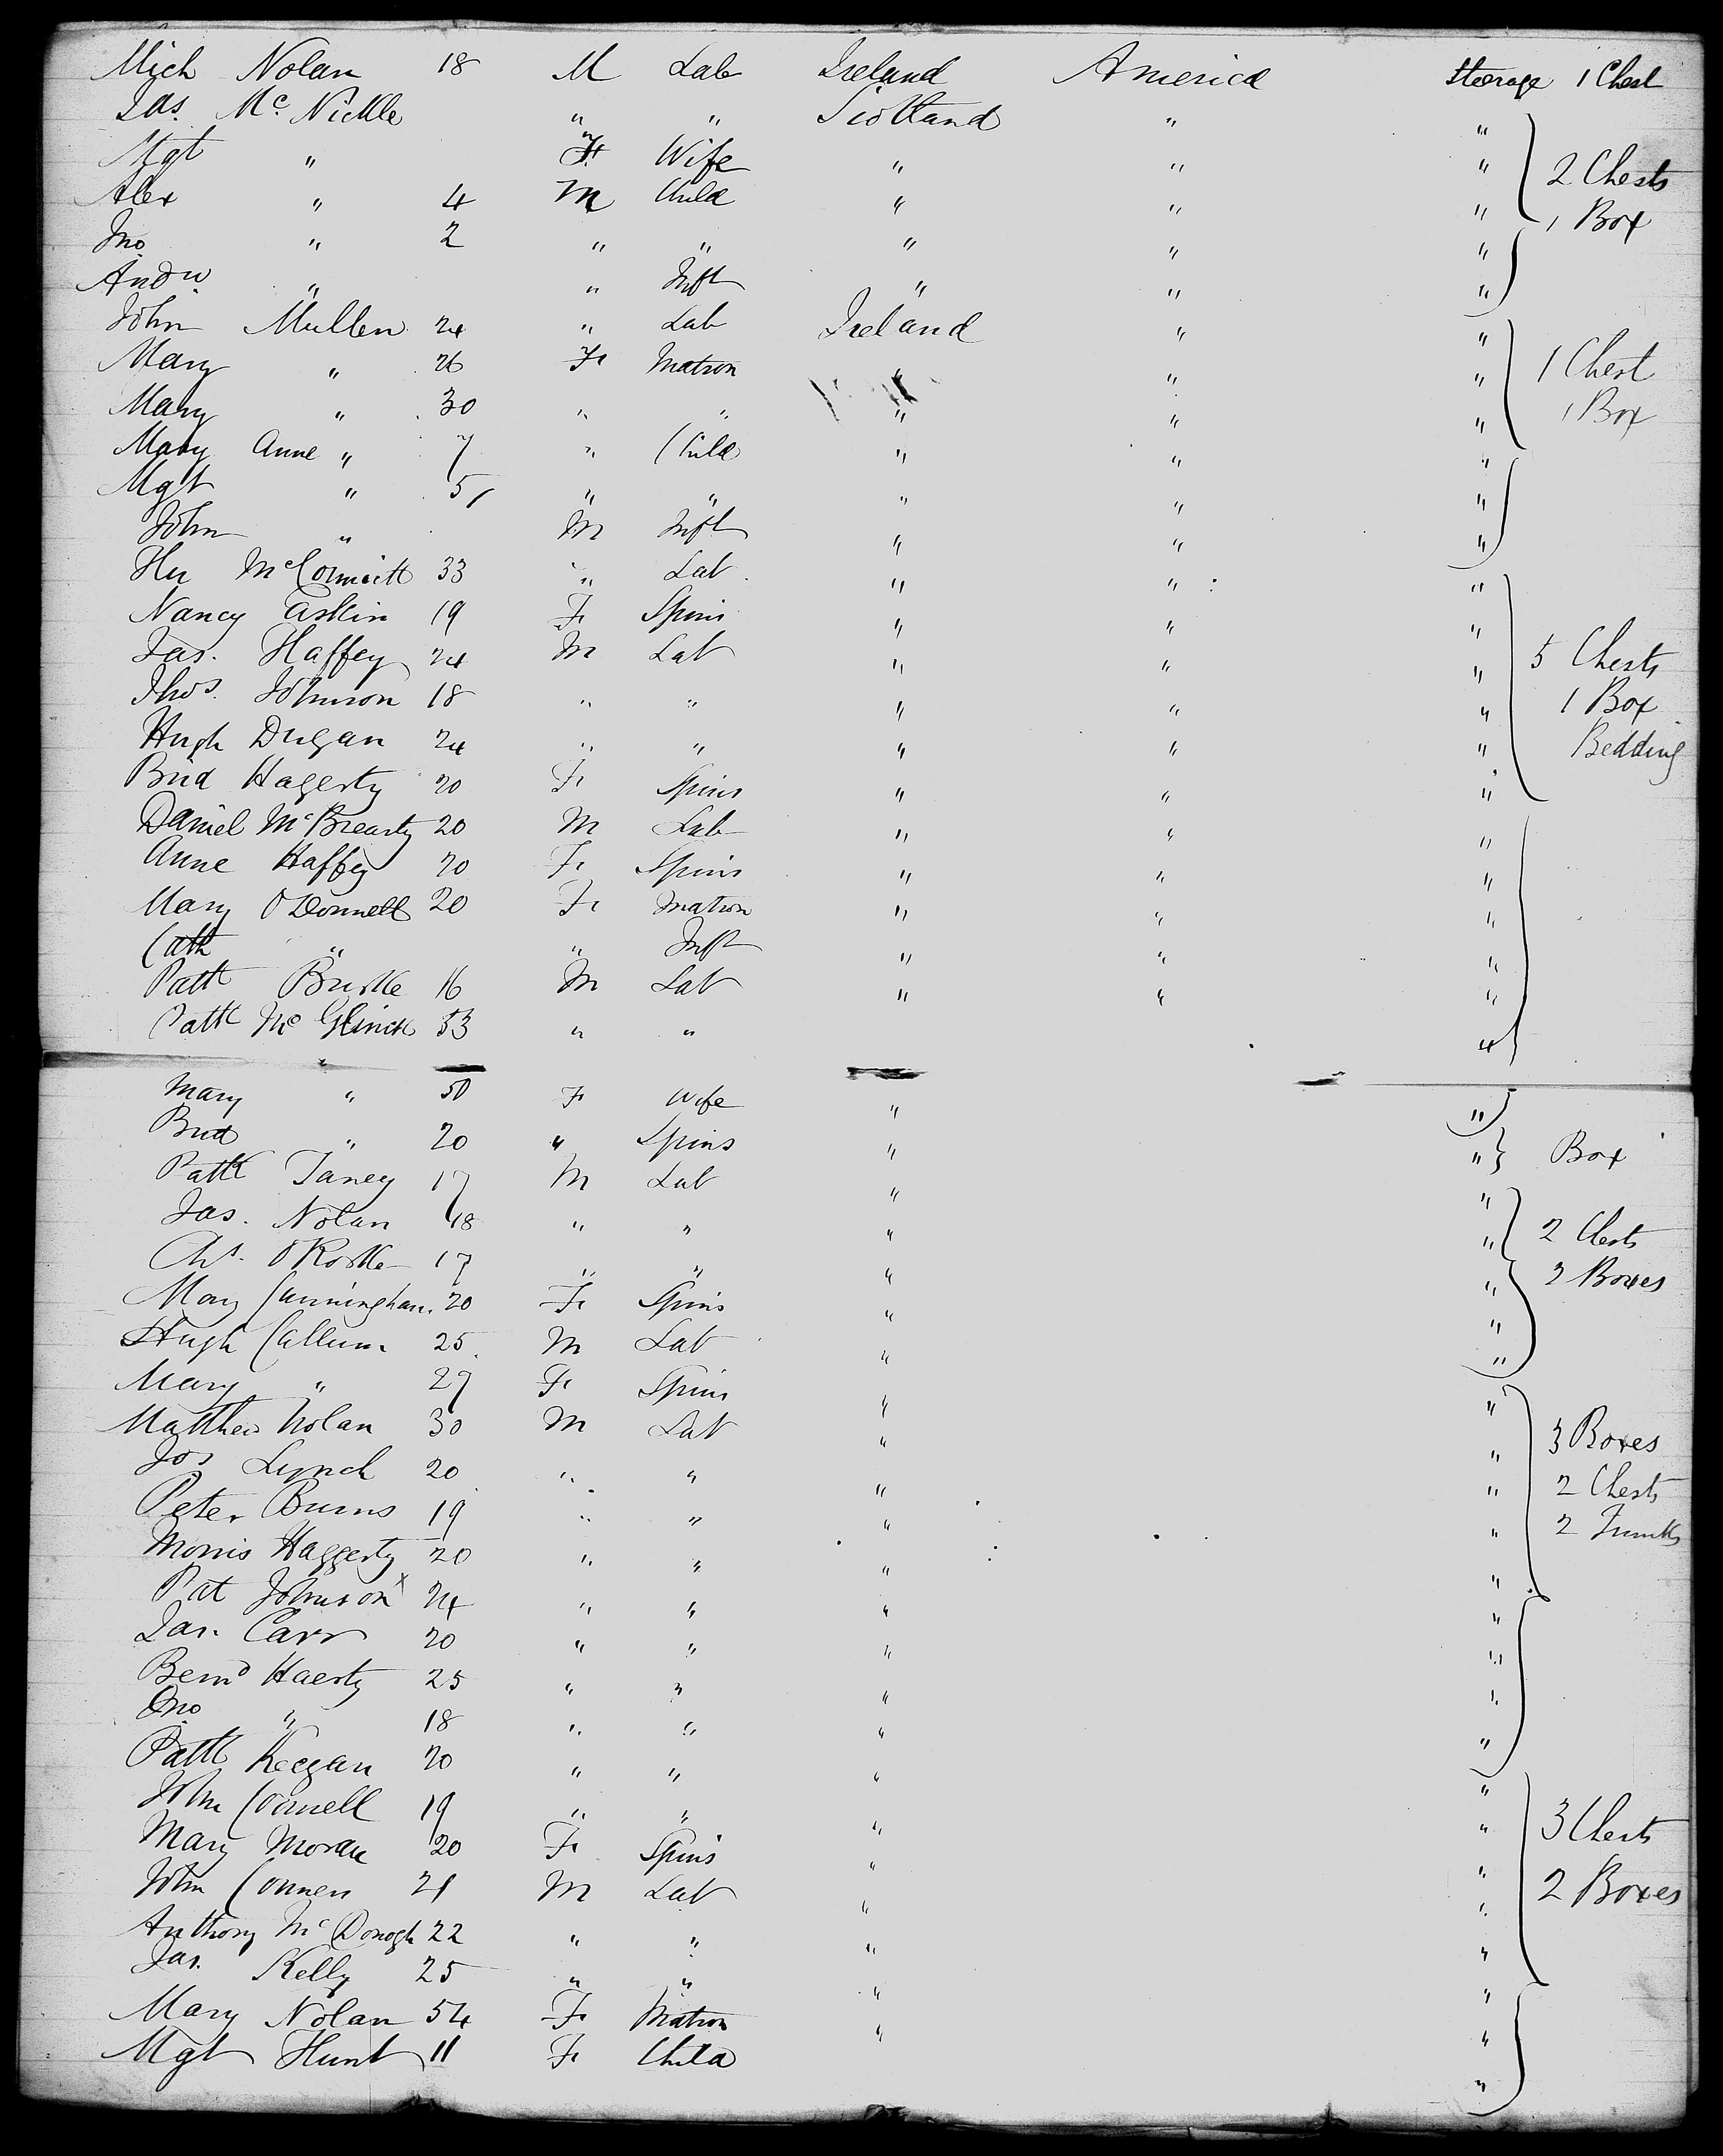 Mich Nolan 18 M Lab Ireland America Steerage 1 Chest
Jas. Mc Nickle " " Scotland " "
Mgt " F Wife " " " 2 Chests
Alex " 4 M Child " " " 1 Box
Jno. " 2 " " " " "
Andw. " " Inft " " "
John Mullen 24 " Lab Ireland " "
Mary " 26 F Matron " " " 1 Chest
Mary " 30 " " " " " 1 Box
Mary Anne " 7 " Child " " "
Mgt " 5 " " " " "
John " M Inft " " "
Hu McCormick 33 " Lab " " "
Nancy Askin 19 F Spins " " "
Jas. Haffey 24 M Lab " " " 5 Chests
Thos. Johnson 18 " " " " " 1 Box
Hugh Dugan 24 " " " " " Bedding
Brid Hagerty 20 F Spins " " "
Daniel McBrearty 20 M Lab " " "
Anne Haffey 20 F Spins " " "
Mary O'Donnell 20 F Matron " " "
Cath " " Inft " " "
Patk Burke 16 M Lab " " "
Patk Mc Glinch 53 " " "
Mary " 50 F Wife " "
Brid " 20 " Spins " " Box
Patk Taney 17 M Lab " "
Jas. Nolan 18 " " " " 2 Chests
Chs. O'Rorke 17 " " " " 2 Boxes
Mary Cunningham 20 F Spins " "
Hugh Callum 25 M Lab " "
Mary " 27 F Spins " "
Matthew Nolan 30 M Lab " " 3 Boxes
Jos Lynch 20 " " " " 2 Chests
Peter Burns 19 " " " " 2 Trunks
Morris Haggerty 20 " " " "
Pat Johnson x 24 " " " "
Jas. Carr 20 " " " "
Bernd Haerty 25 " " " "
Jno " 18 " " " "
Patk Keegan 20 " " " "
John Connell 19 " " " "
Mary Moran 20 F Spins " " 3 Chests
John Conner 21 M Lab " " 2 Boxes
Anthony McDonogh 22 " " " "
Jas. Kelly 25 " " " "
Mary Nolan 54 F Matron " "
Mgt Hunt 11 F Child "